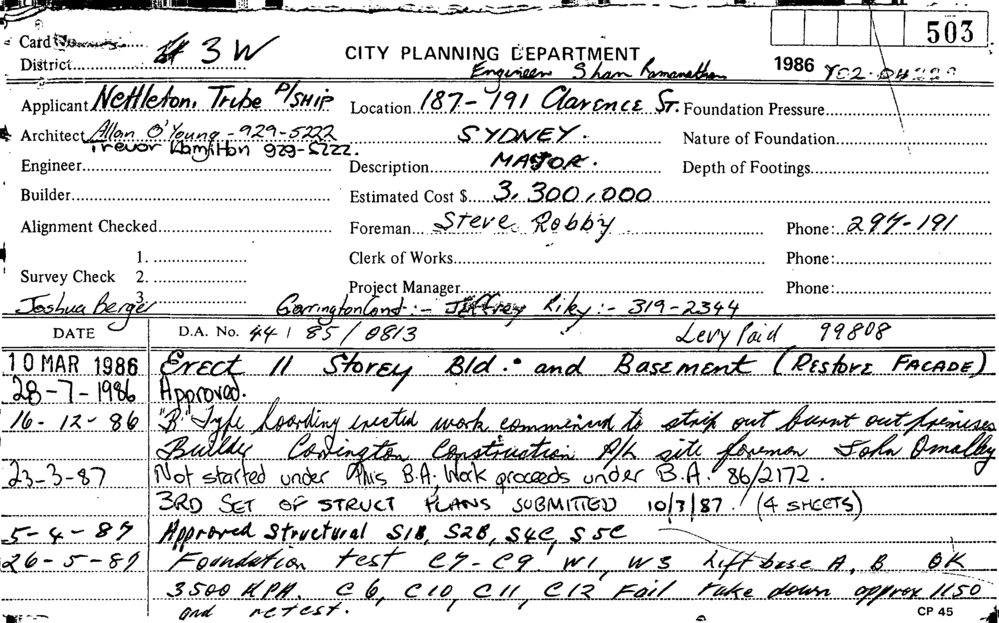 503
Card
District # 3W
CITY PLANNING DEPARTMENT
1986
Engineer Sham Ramanathan
Applicant Nettleton, Tribe P/SHIP
Location 187-191 Clarence St.
Foundation Pressure
Architect Allan O'Young - 929-5222
SYDNEY.
Nature of Foundation
Trevor Hamilton 929-5222.
Engineer
Description MAJOR.
Depth of Footings
Builder
Estimated Cost $ 3,300,000
Alignment Checked
Foreman Steve Robby
Phone: 297-191
1.
Clerk of Works
Phone:
Survey Check 2.
3.
Project Manager
Phone:
Joshua Berger
Const :- Jeffrey Riley :- 319-2344
DATE
D.A. No. 44 / 85 / 0813
Levy Paid 99808
10 MAR 1986 Erect 11 Storey Bld. and Basement (Restore Facade)
28-7-1986 Approved.
16-12-86 "B" Type hoarding erected work commenced to strip out burnt out premises
Builder Carrington Construction P/L site foreman John Omalley
23-3-87 Not started under this B.A. Work proceeds under B.A. 86/2172.
3RD SET OF STRUCT PLANS SUBMITTED 10/3/87. (4 SHEETS)
5-4-87 Approved Structural S1B, S2B, S4C, S5C
26-5-87 Foundation test C7-C9 W1, W3 Lift base A, B OK
3500 KPA. C6, C10, C11, C12 Fail take down approx 1150
and retest.
CP 45